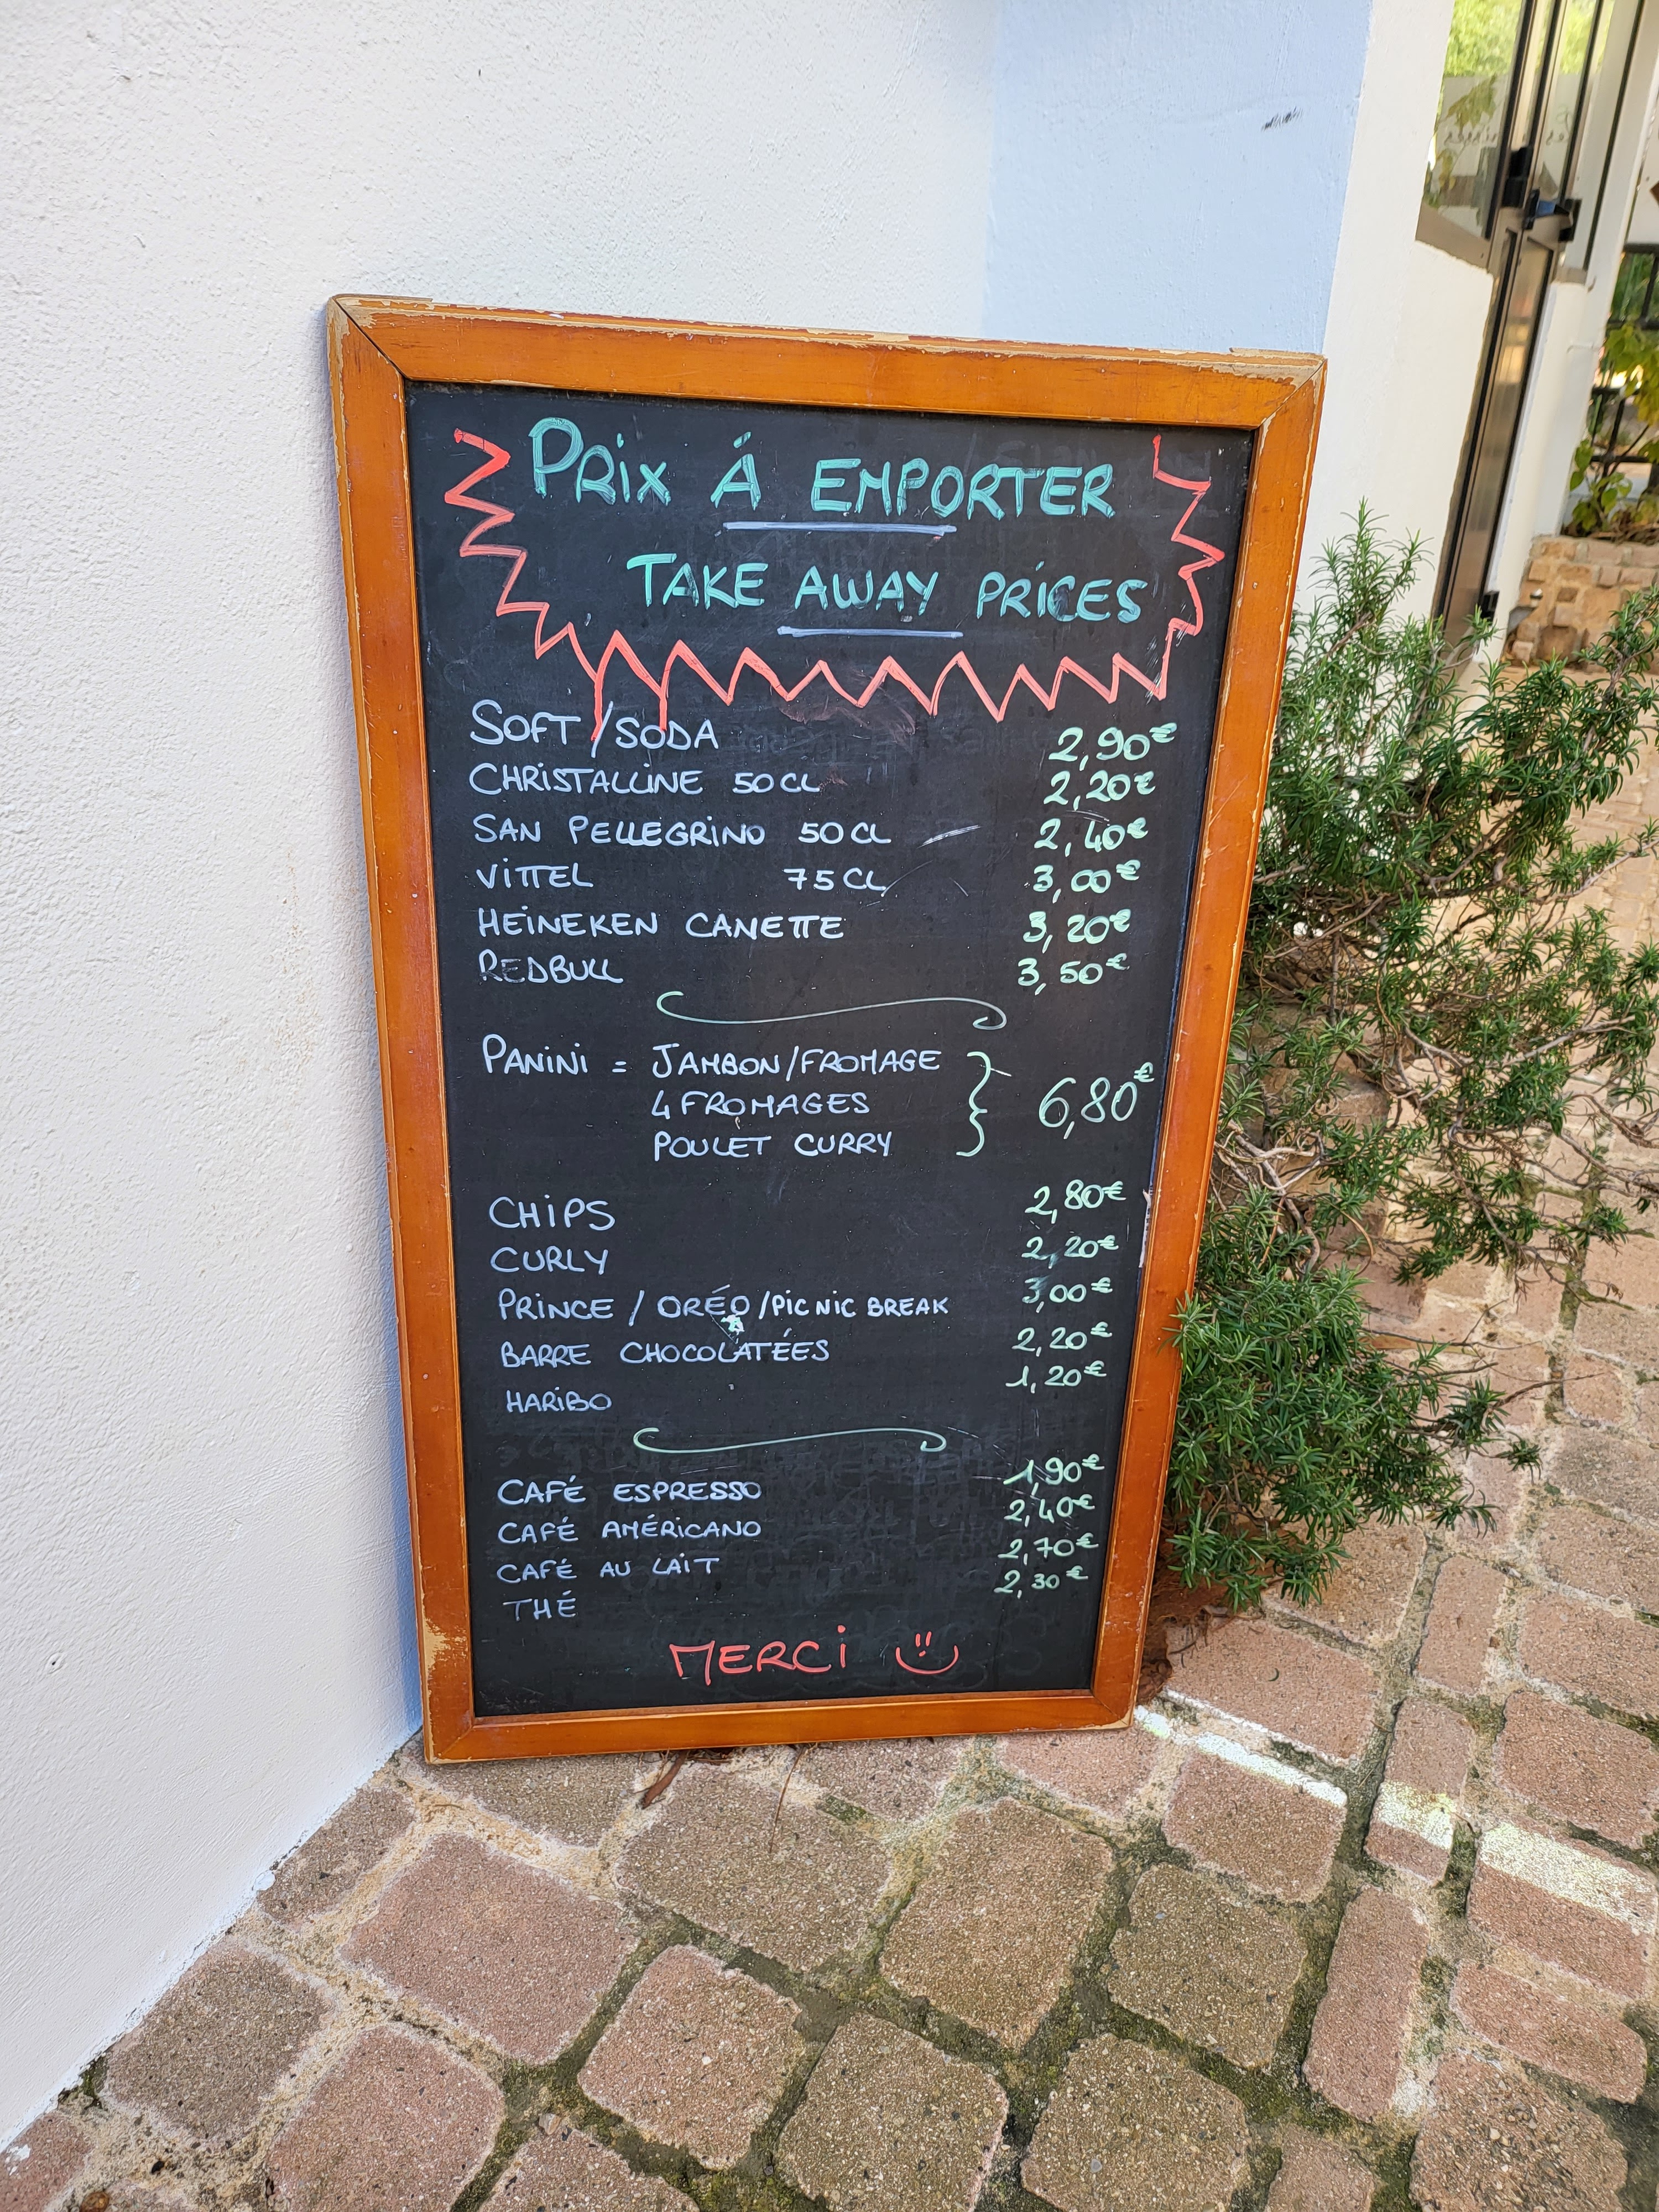 PRIX À EMPORTER
TAKE AWAY PRICES
SOFT/SODA 2,90€
CHRISTALLINE 50CL 2,20€
SAN PELLEGRINO 50CL 2,40€
VITTEL 75CL 3,00€
HEINEKEN CANETTE 3,20€
REDBULL 3,50€
PANINI = JAMBON/FROMAGE
4 FROMAGES 6,80€
POULET CURRY
CHIPS 2,80€
CURLY 2,20€
PRINCE / ORÉO/PIC NIC BREAK 3,00€
BARRE CHOCOLATÉES 2,20€
HARIBO 1,20€
CAFÉ ESPRESSO 1,90€
CAFÉ AMÉRICANO 2,40€
CAFÉ AU LAIT 2,70€
THÉ 2,30€
MERCI